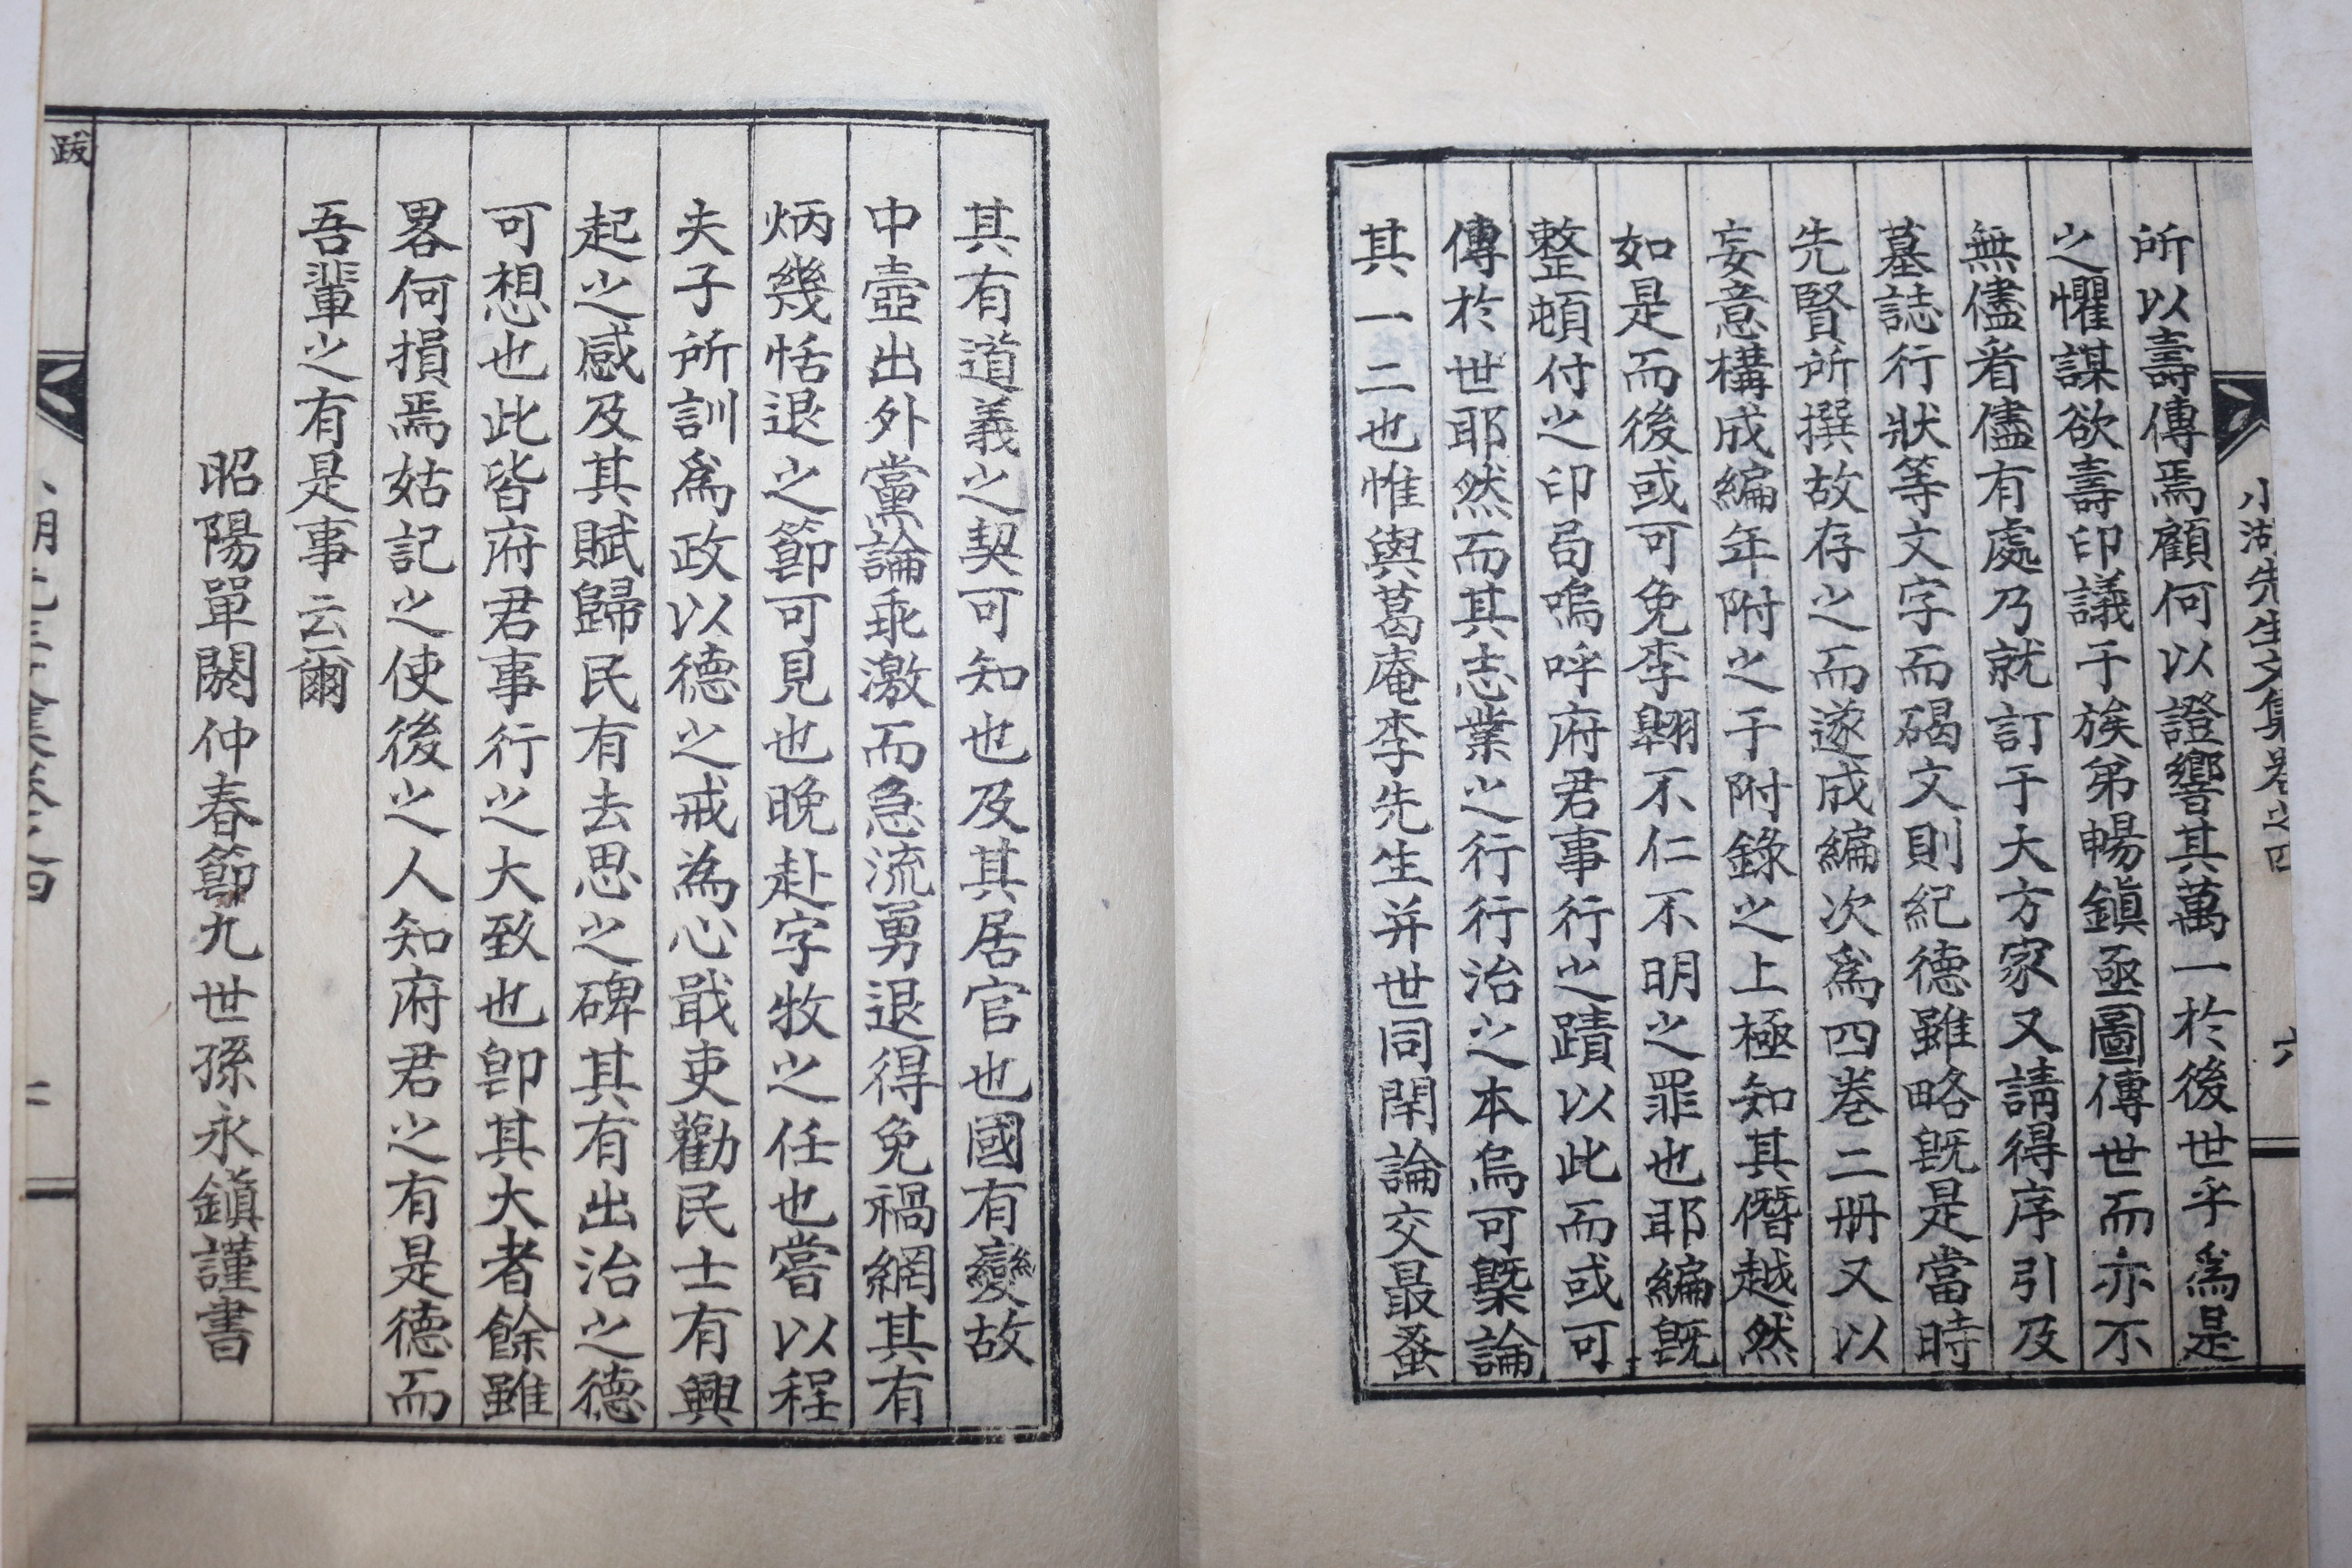 小湖先生文集卷之四
六
所以壽傳焉顧何以證響其萬一於後世乎爲是
之懼謀欲壽印議于族弟暢鎭亟圖傳世而亦不
無儘看儘有處乃就訂于大方家又請得序引及
墓誌行狀等文字而碣文則紀德雖略旣是當時
先賢所撰故存之而遂成編次爲四卷二冊又以
妄意構成編年附之于附錄之上極知其僭越然
如是而後或可免李翶不仁不明之罪也耶編旣
整頓付之印局嗚呼府君事行之蹟以此而或可
傳於世耶然而其志業之行行治之本烏可槩論
其一二也惟與葛庵李先生并世同閈論交最蚤
其有道義之契可知也及其居官也國有變故
中壺出外黨論乖激而急流勇退得免禍網其有
炳幾恬退之節可見也晚赴字牧之任也嘗以程
夫子所訓爲政以德之戒為心戢吏勸民士有興
起之感及其賦歸民有去思之碑其有出治之德
可想也此皆府君事行之大致也卽其大者餘雖
畧何損焉姑記之使後之人知府君之有是德而
吾輩之有是事云爾
昭陽單閼仲春節九世孫永鎭謹書
跋